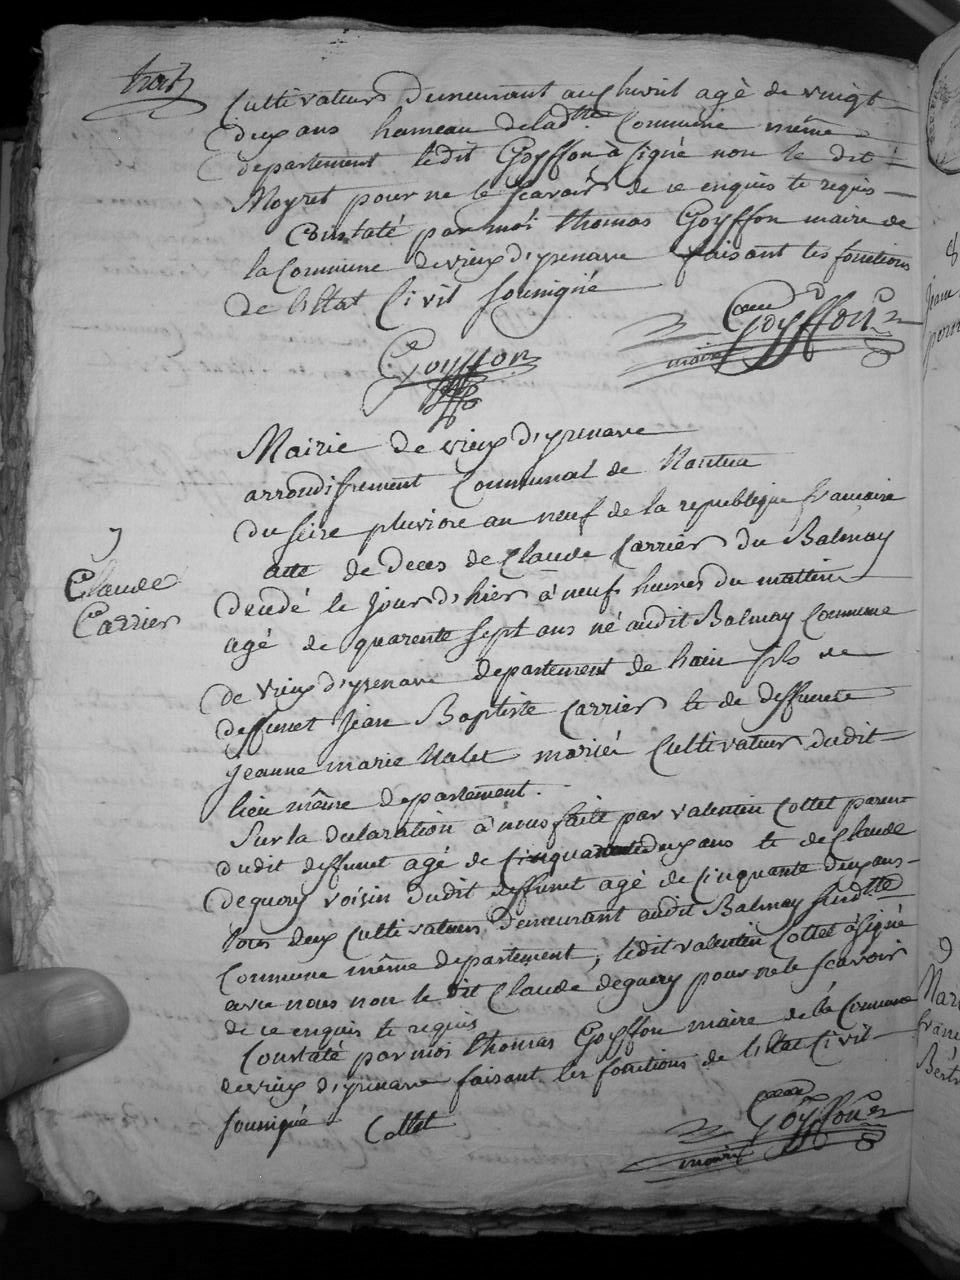 Cultivateur Demeurant au Chivril agé de vingt
deux ans hameau deladtte Commune même
departement ledit Goyffon à signé non le dit
Moyret pour ne le scavoir de ce enquis te requis
Constaté par moi thomas Goyffon maire de
la Commune de vieux d'yzenave faisant les fonctions
de L'Etat Civil sousigné
Goyffon
maire
Goyffon
Mairie de vieux d'yzenave
arrondissement Communal de Nantua
du seize pluviose an neuf de la republique francaise
7
Claude
Carrier
acte de Deces de Claude Carrier du Balmay
Decedé le jour d'hier à neuf heures du mattin
agé de quarente sept ans né audit Balmay Commune
de vieux d'yzenave departement de Lain fils de
deffunct Jean Baptiste Carrier te de deffuncte
Jeanne marie Valet marié Cultivateur dudit
lieu même departement.
Sur la declaration à nous faite par valentin Cottet parent
dudit deffunct agé de Cinquante deux ans te de Claude
Deguery voisin dudit deffunct agé de Cinquante deux ans
tous deux Cultivateurs Demeurant audit Balmay susdtte
Commune même departement, ledit valentin Cottet à signé
avec nous non le dit Claude deguery pour ne le scavoir
de ce enquis te requis
Constaté par moi thomas Goyffon maire de la Commune
de vieux d'yzenave faisant les fonctions de l'Etat Civil
sousigné Cottet
Goyffon
maire
8
Jean
9